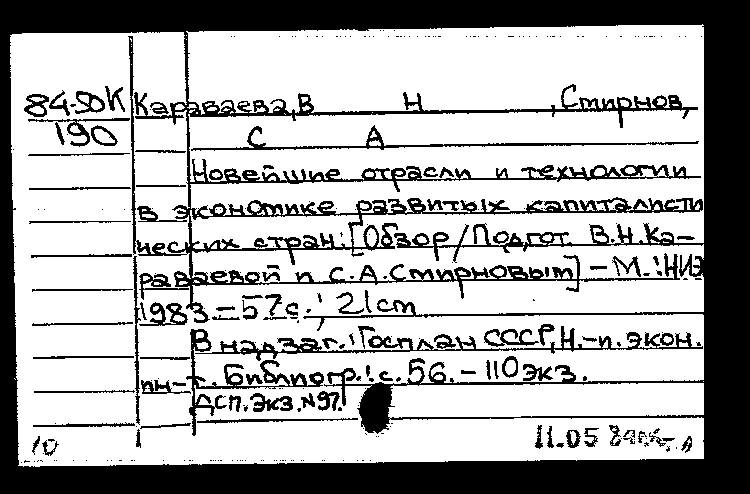 84-50К Караваева, В Н , Смирнов,
190 С А
Новейшие отрасли и технологии
в экономике развитых капиталисти
ческих стран: [Обзор/Подгот. В.Н.Ка-
раваевой и С.А.Смирновым] - М.: НИЭ
1983. - 57с.; 21см
В надзаг.: Госплан СССР, Н.-и. экон.
ин-т. Библиогр.: с. 56. - 110 экз.
ДСП. Экз. №97.
10 11.05